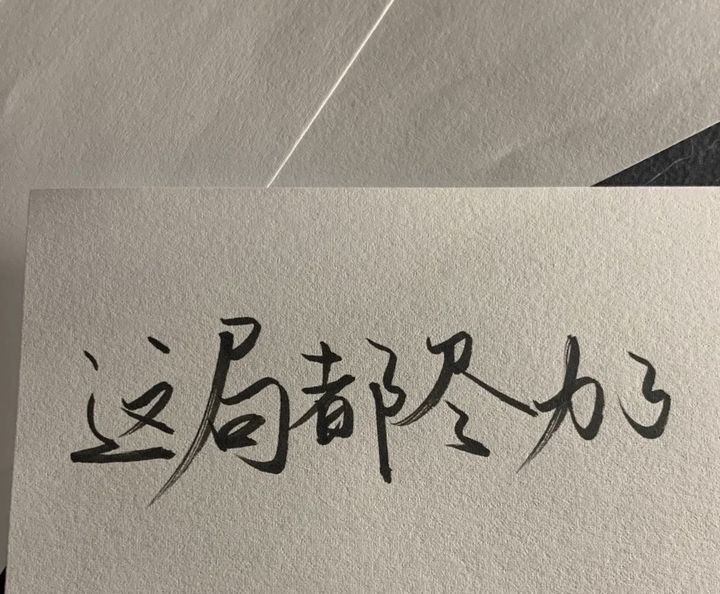 这局都尽力了